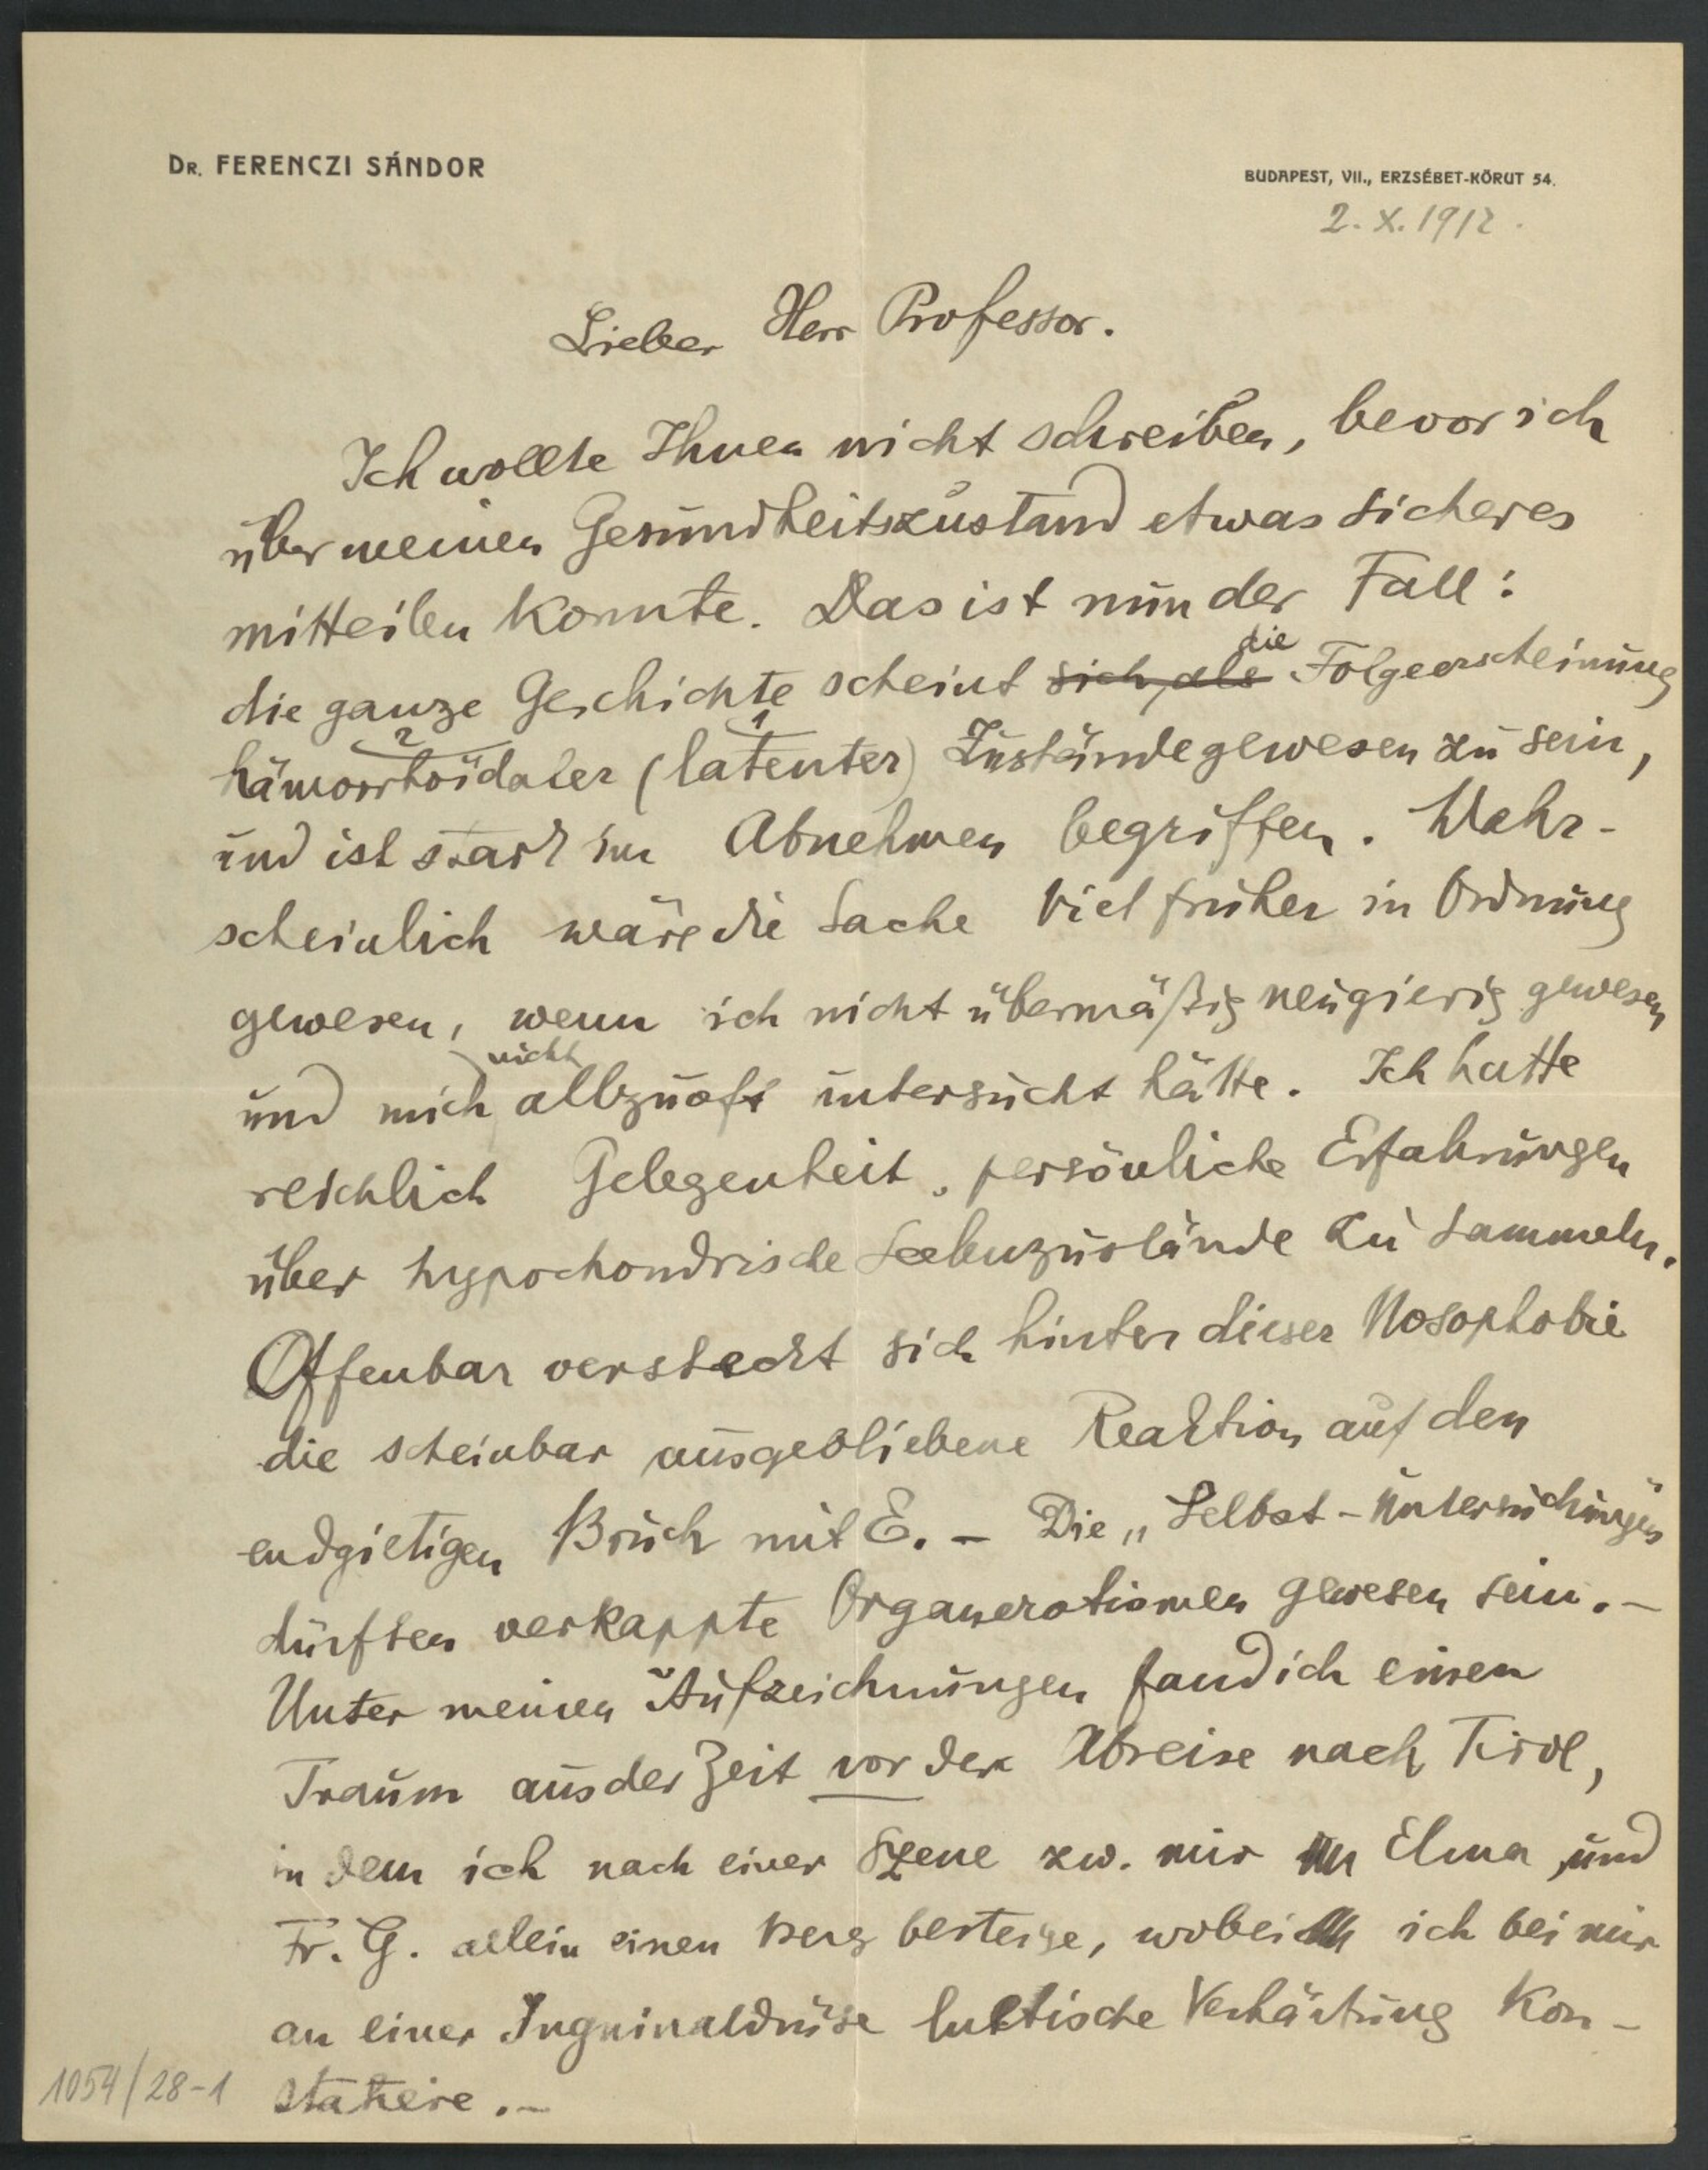 DR. FERENCZI SÁNDOR
BUDAPEST, VII., ERZSÉBET-KÖRUT 54.
2. X. 1912.
Lieber Herr Professor.
Ich wollte Ihnen nicht schreiben, bevor ich
über meinen Gesundheitszustand etwas sicheres
mitteilen konnte. Das ist nun der Fall:
die ganze Geschichte scheint sich, als die Folgeerscheinung
2 1
hämorrhoidaler (latenter) Zustände gewesen zu sein,
und ist stark im Abnehmen begriffen. Wahr-
scheinlich wäre die Sache viel früher in Ordnung
gewesen, wenn ich nicht übermäßig neugierig gewesen
und mich nicht allzuoft untersucht hätte. Ich hatte
reichlich Gelegenheit, persönliche Erfahrungen
über hypochondrische Seelenzustände zu sammeln.
Offenbar versteckt sich hinter dieser Nosophobie
die scheinbar ausgebliebene Reaktion auf den
endgiltigen Bruch mit E. – Die „Selbst-Untersuchungen
dürften verkappte Organerotismen gewesen sein. –
Unter meinen Aufzeichnungen fand ich einen
Traum aus der Zeit vor der Abreise nach Tirol,
in dem ich nach einer Szene zw. mir Elma, und
Fr. G. allein einen Berg besteige, wobei ich bei mir
an einer Inguinaldrüse luetische Verhärtung kon-
statiere. –
1054/28-1